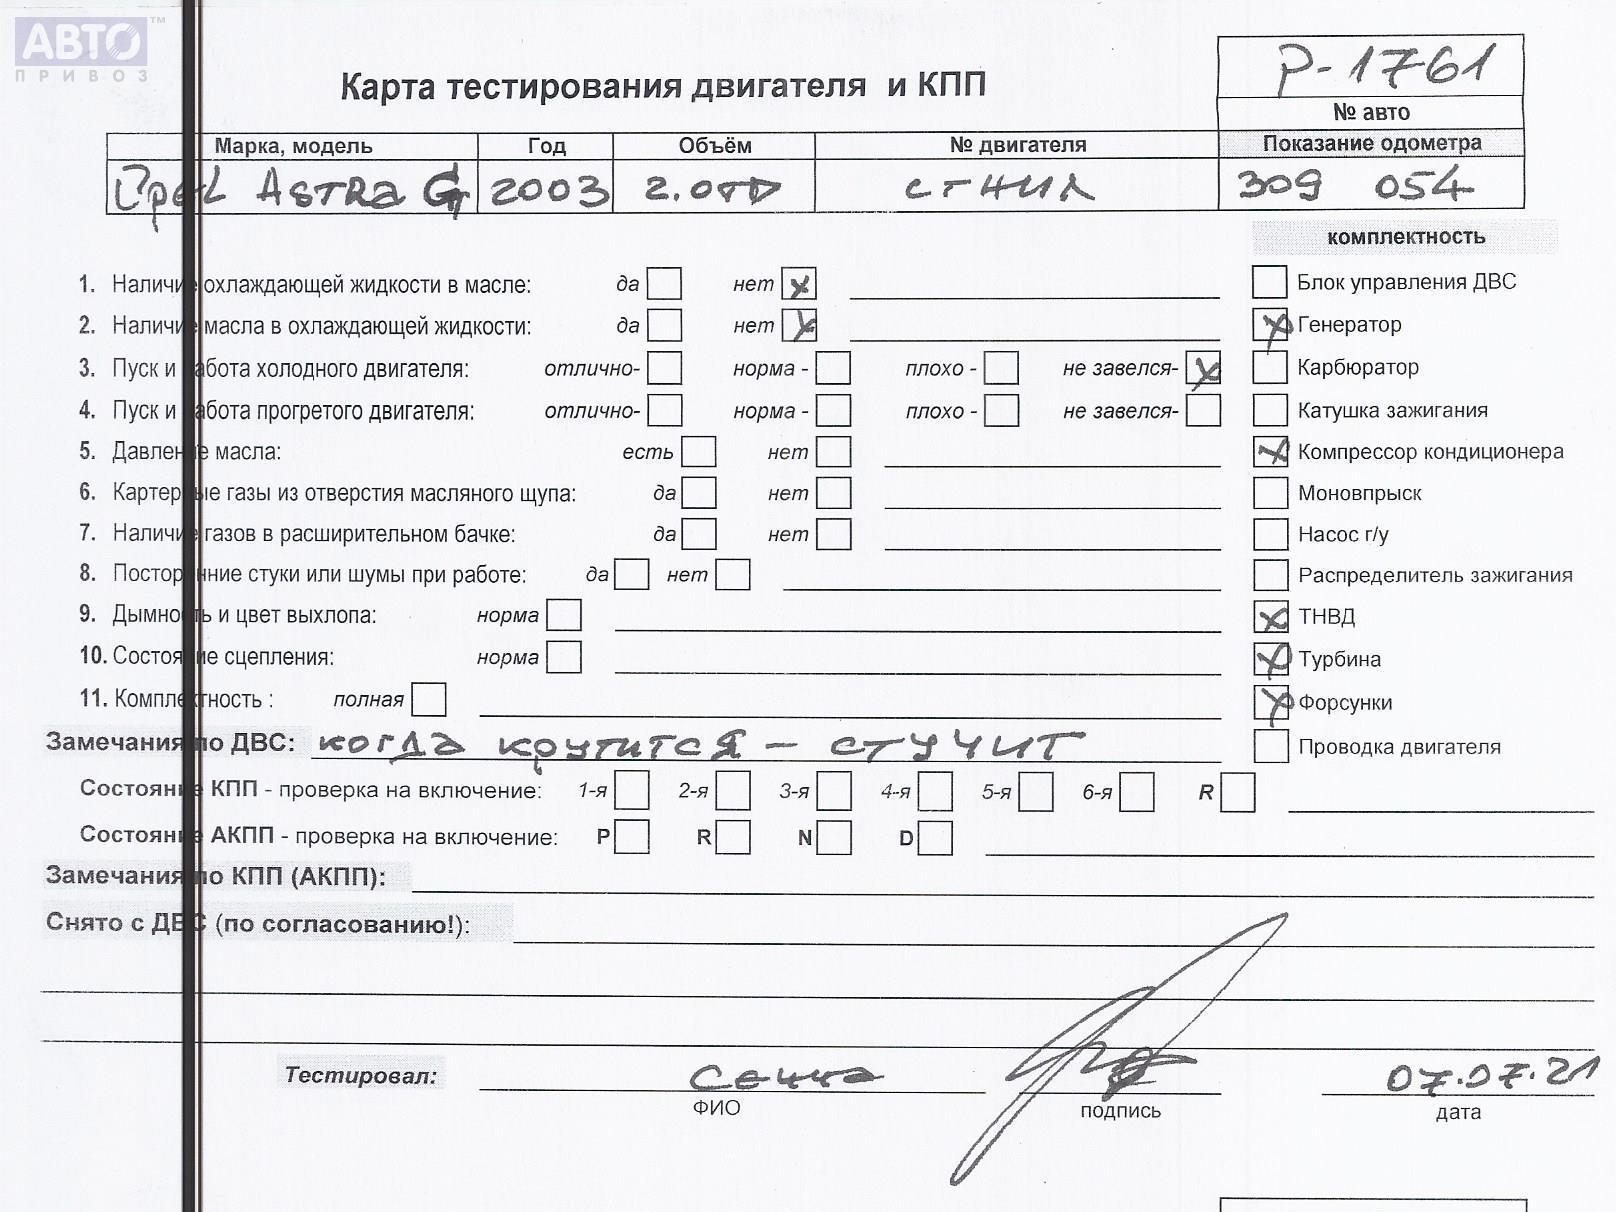 АВТО™
ПРИВОЗ
Карта тестирования двигателя и КПП
P-1761
№ авто
Марка, модель Год Объём № двигателя Показание одометра
Opel Astra G 2003 2.0TD сгнил 309 054
комплектность
1. Наличие охлаждающей жидкости в масле: да нет x Блок управления ДВС
2. Наличие масла в охлаждающей жидкости: да нет x x Генератор
3. Пуск и работа холодного двигателя: отлично- норма - плохо - не завелся- x Карбюратор
4. Пуск и работа прогретого двигателя: отлично- норма - плохо - не завелся- Катушка зажигания
5. Давление масла: есть нет x Компрессор кондиционера
6. Картерные газы из отверстия масляного щупа: да нет Моновпрыск
7. Наличие газов в расширительном бачке: да нет Насос г/у
8. Посторонние стуки или шумы при работе: да нет Распределитель зажигания
9. Дымность и цвет выхлопа: норма x ТНВД
10. Состояние сцепления: норма x Турбина
11. Комплектность : полная x Форсунки
Замечания по ДВС: когда крутится - стучит Проводка двигателя
Состояние КПП - проверка на включение: 1-я 2-я 3-я 4-я 5-я 6-я R
Состояние АКПП - проверка на включение: P R N D
Замечания по КПП (АКПП):
Снято с ДВС (по согласованию!):
Тестировал: 07.07.21
ФИО подпись дата